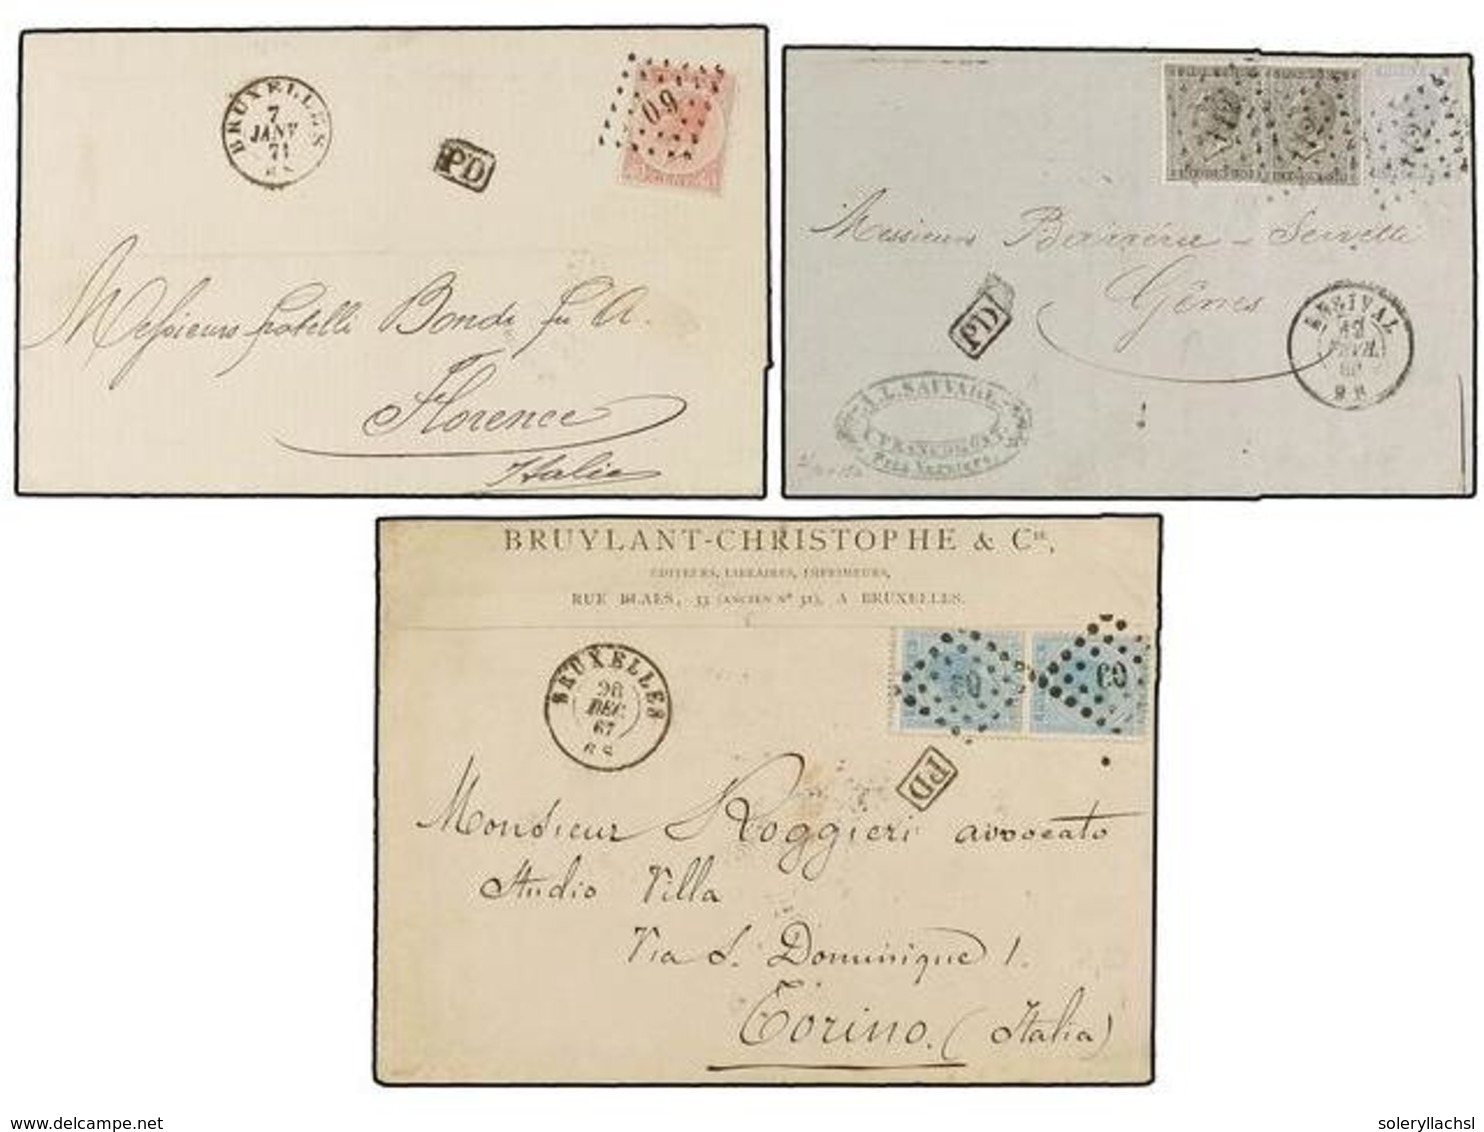 BRUXELLES
7
JANV
71
PD
60
Messieurs fratelli Bondi fu A.
Florence
Italie
112
112
112
Messieurs Barrérie Servetti
Gênes
PD
ENSIVAL
12
FEVR.
J. L. SAUVAGE
A FRANCOMONT
Près Verviers.
BRUYLANT-CHRISTOPHE & Cie,
EDITEURS, LIBRAIRES, IMPRIMEURS,
RUE BLAES, 33 (ANCIEN No 31), A BRUXELLES.
BRUXELLES
28
DEC
67
6 S
60
60
PD
Monsieur Roggieri avvocato
Studio Villa
Via S. Dominique 1.
Torino. (Italia)
delcampe.net
soleryllachsl